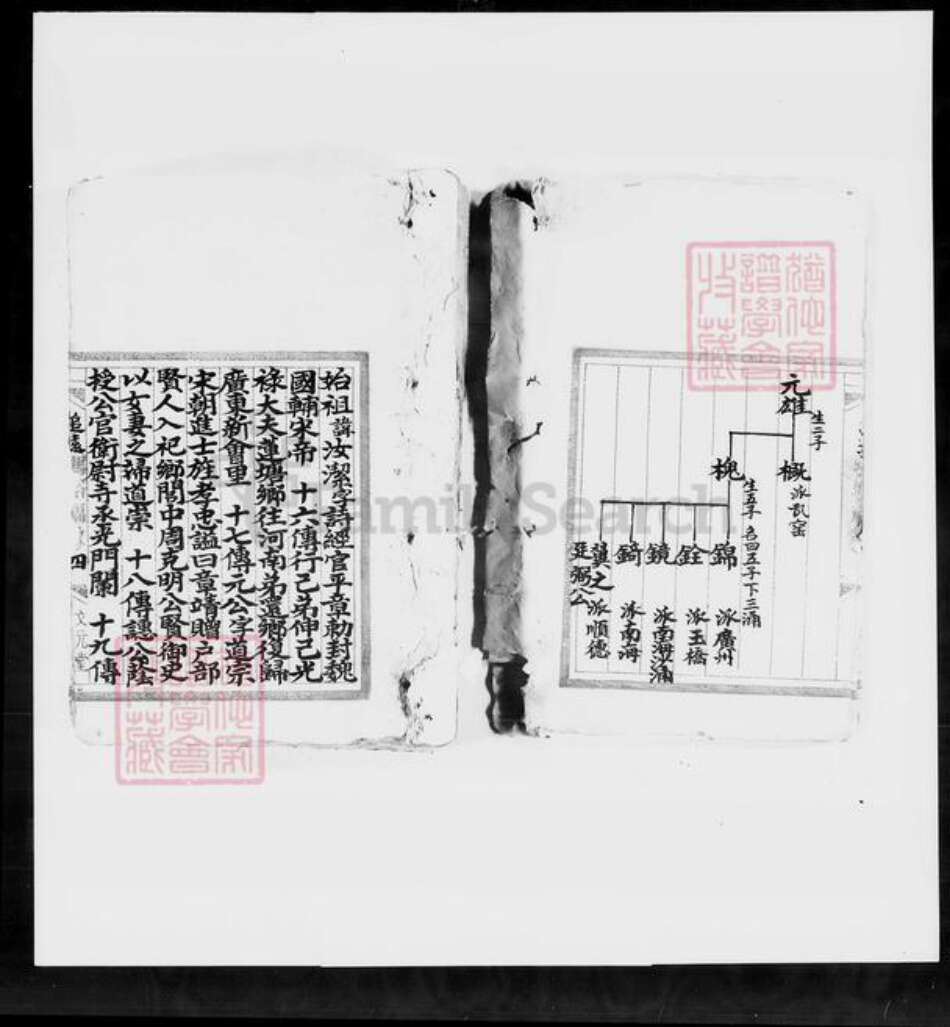 元雄
生二子
概
派瓦窑
槐
生五子 名四五子下三涌
錦 派廣州
銓 派玉橋
鏡 派南海涌
錡 派南海
冀之 派順德
延弼公
始祖諱汝潔字詩經官平章勅封魏
國輔宋帝 十六傳行己弟伸己光
祿大夫蓮塘鄉往河南弟還鄉復歸
廣東新會里 十七傳元公字道宗
宋朝進士旌孝忠謚曰章靖贈户部
賢人入祀鄉閭中周克明公賢御史
以女妻之掃道崇 十八傳譓公蔭
授公官衛尉寺丞光門闌 十九傳
追遠
四
文元堂
猶他家
譜學會
收藏
猶他家
譜學會
收藏
FamilySearch